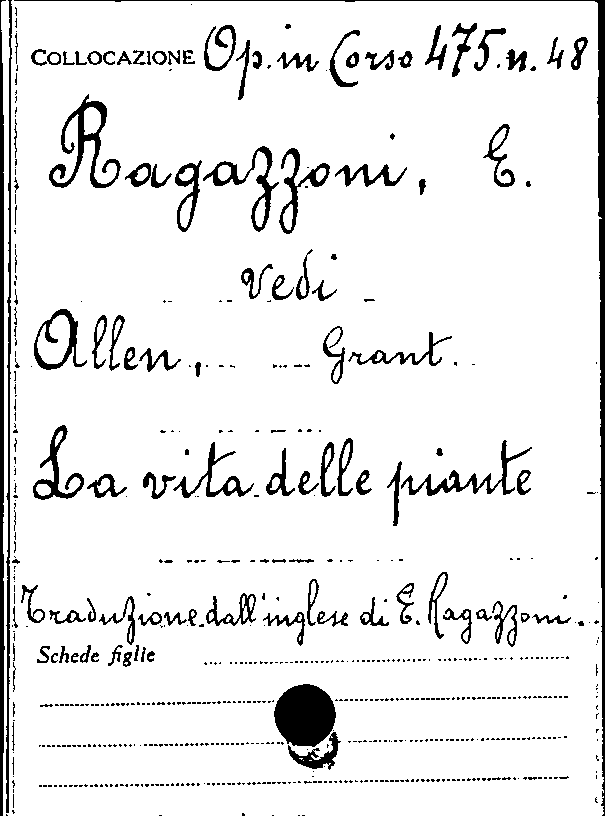 COLLOCAZIONE Op. in Corso 475. n. 48
Ragazzoni, E.
vedi
Allen, Grant.
La vita delle piante
Traduzione dall'inglese di E. Ragazzoni.
Schede figlie